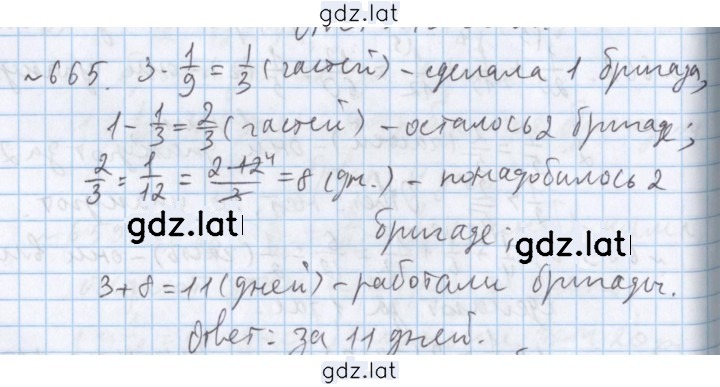 gdz.lat
№665. 3 · 1/9 = 1/3 (частей) – сделала 1 бригада,
1 - 1/3 = 2/3 (частей) – осталось 2 бригаде;
2/3 : 1/12 = 2·12⁴/3 = 8 (дн.) – понадобилось 2
gdz.lat
бригаде;
gdz.lat
3+8=11 (дней) – работали бригады.
Ответ: за 11 дней.
gdz.lat